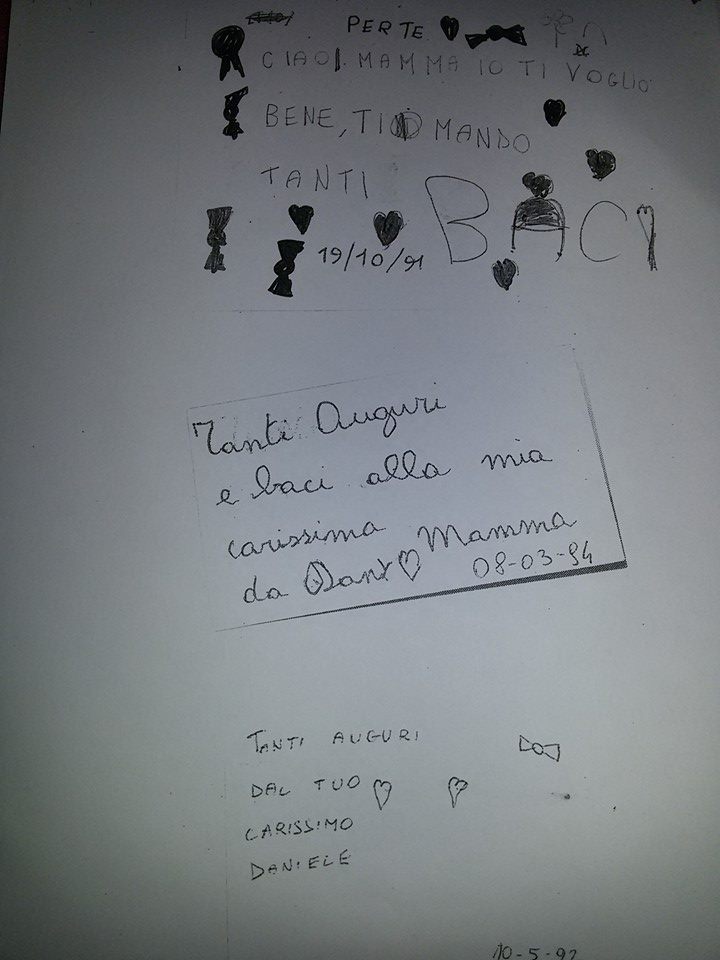 PER TE
CIAO MAMMA IO TI VOGLIO
BENE, TI MANDO
TANTI
BACI
19/10/91
Tanti Auguri
e baci alla mia
carissima Mamma
da Dany 08-03-94
TANTI AUGURI
DAL TUO
CARISSIMO
DANIELE
10-5-92